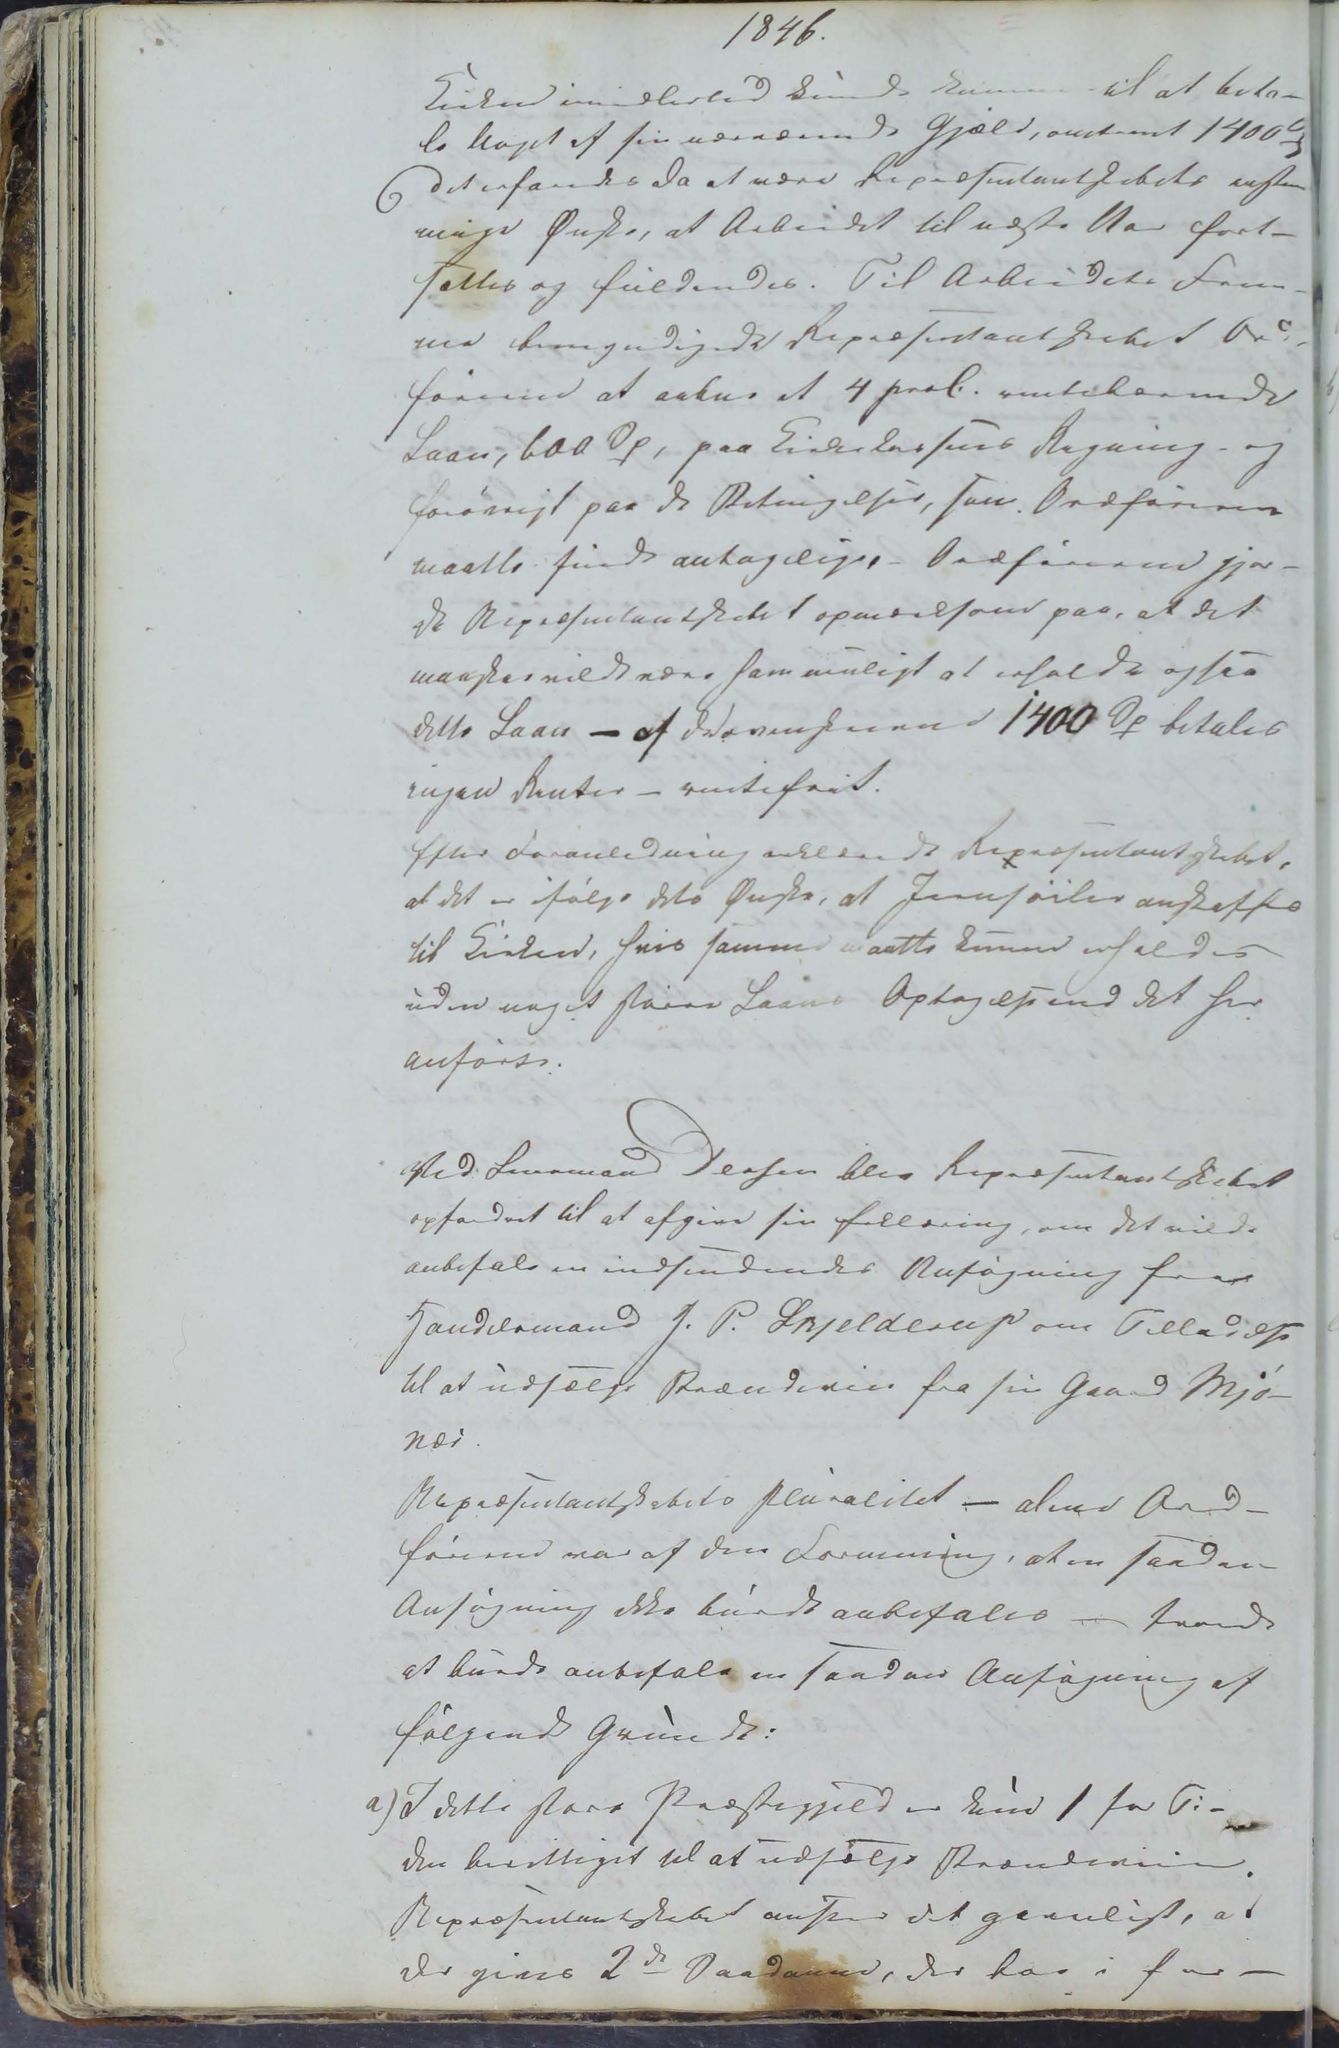 1846.
Kirken imidlertid kunde komme til at beta-
le Noget af sin nærværende Gjæld, omtrent 1400
det erfaredes da at være Repræsentantskabets enstem
mige Ønske, at Arbeidet til næste Aar fort-
sættes og fuldendes. Til Arbeidets Frem-
me bemyndigede Repræsentantskabet Ord-
føreren at aabne et 4 proC. rentebærende
Laan, 600 Spd, paa Kirkekassens Regning - og
forøvrigt paa de Betingelser, som Ordføreren
maatte finde antagelige. - Ordføreren gjor-
de Repræsentantskabet opmærksom paa, at det
maaskee vilde være ham muligt at erholde ogsaa
dette Laan - af de ovenskrevne 1400 Spd betales
ingen Renter - rentefrit.
Efter Foranledning erklærede Repræsentantskabet,
at det er ifølge dets Ønske, at Jernsöiler anskaffes
til Kirken, hvis samme maatte kunne erholdes
uden noget større Laans Optagelse end det her
anførte.
Ved Lensmand Dersen blev Repræsentantskabet
opfordret til at afgive sin Erklæring, om det vilde
anbefale en indsendendes Ansøgning fra
Handelsmand J. P. Skjelderup om Tilladelse
til at udsælge Brændeviin fra sin Gaard Mjö-
næs.
Repræsentantskabets Pluralitet - alene Ord-
føreren var af den Formening, at en saadan
Ansøgning ikke burde anbefales - troede
at burde anbefale en saadan Ansøgning af
følgende Grunde:
a) I dette store Præstegjeld er kun 1 for Ti-
den berettiget til at udsælge Brændeviin.
Repræsentantskabet anseer det gavnligt, at
der gives 2de Saadanne, der boe i for-